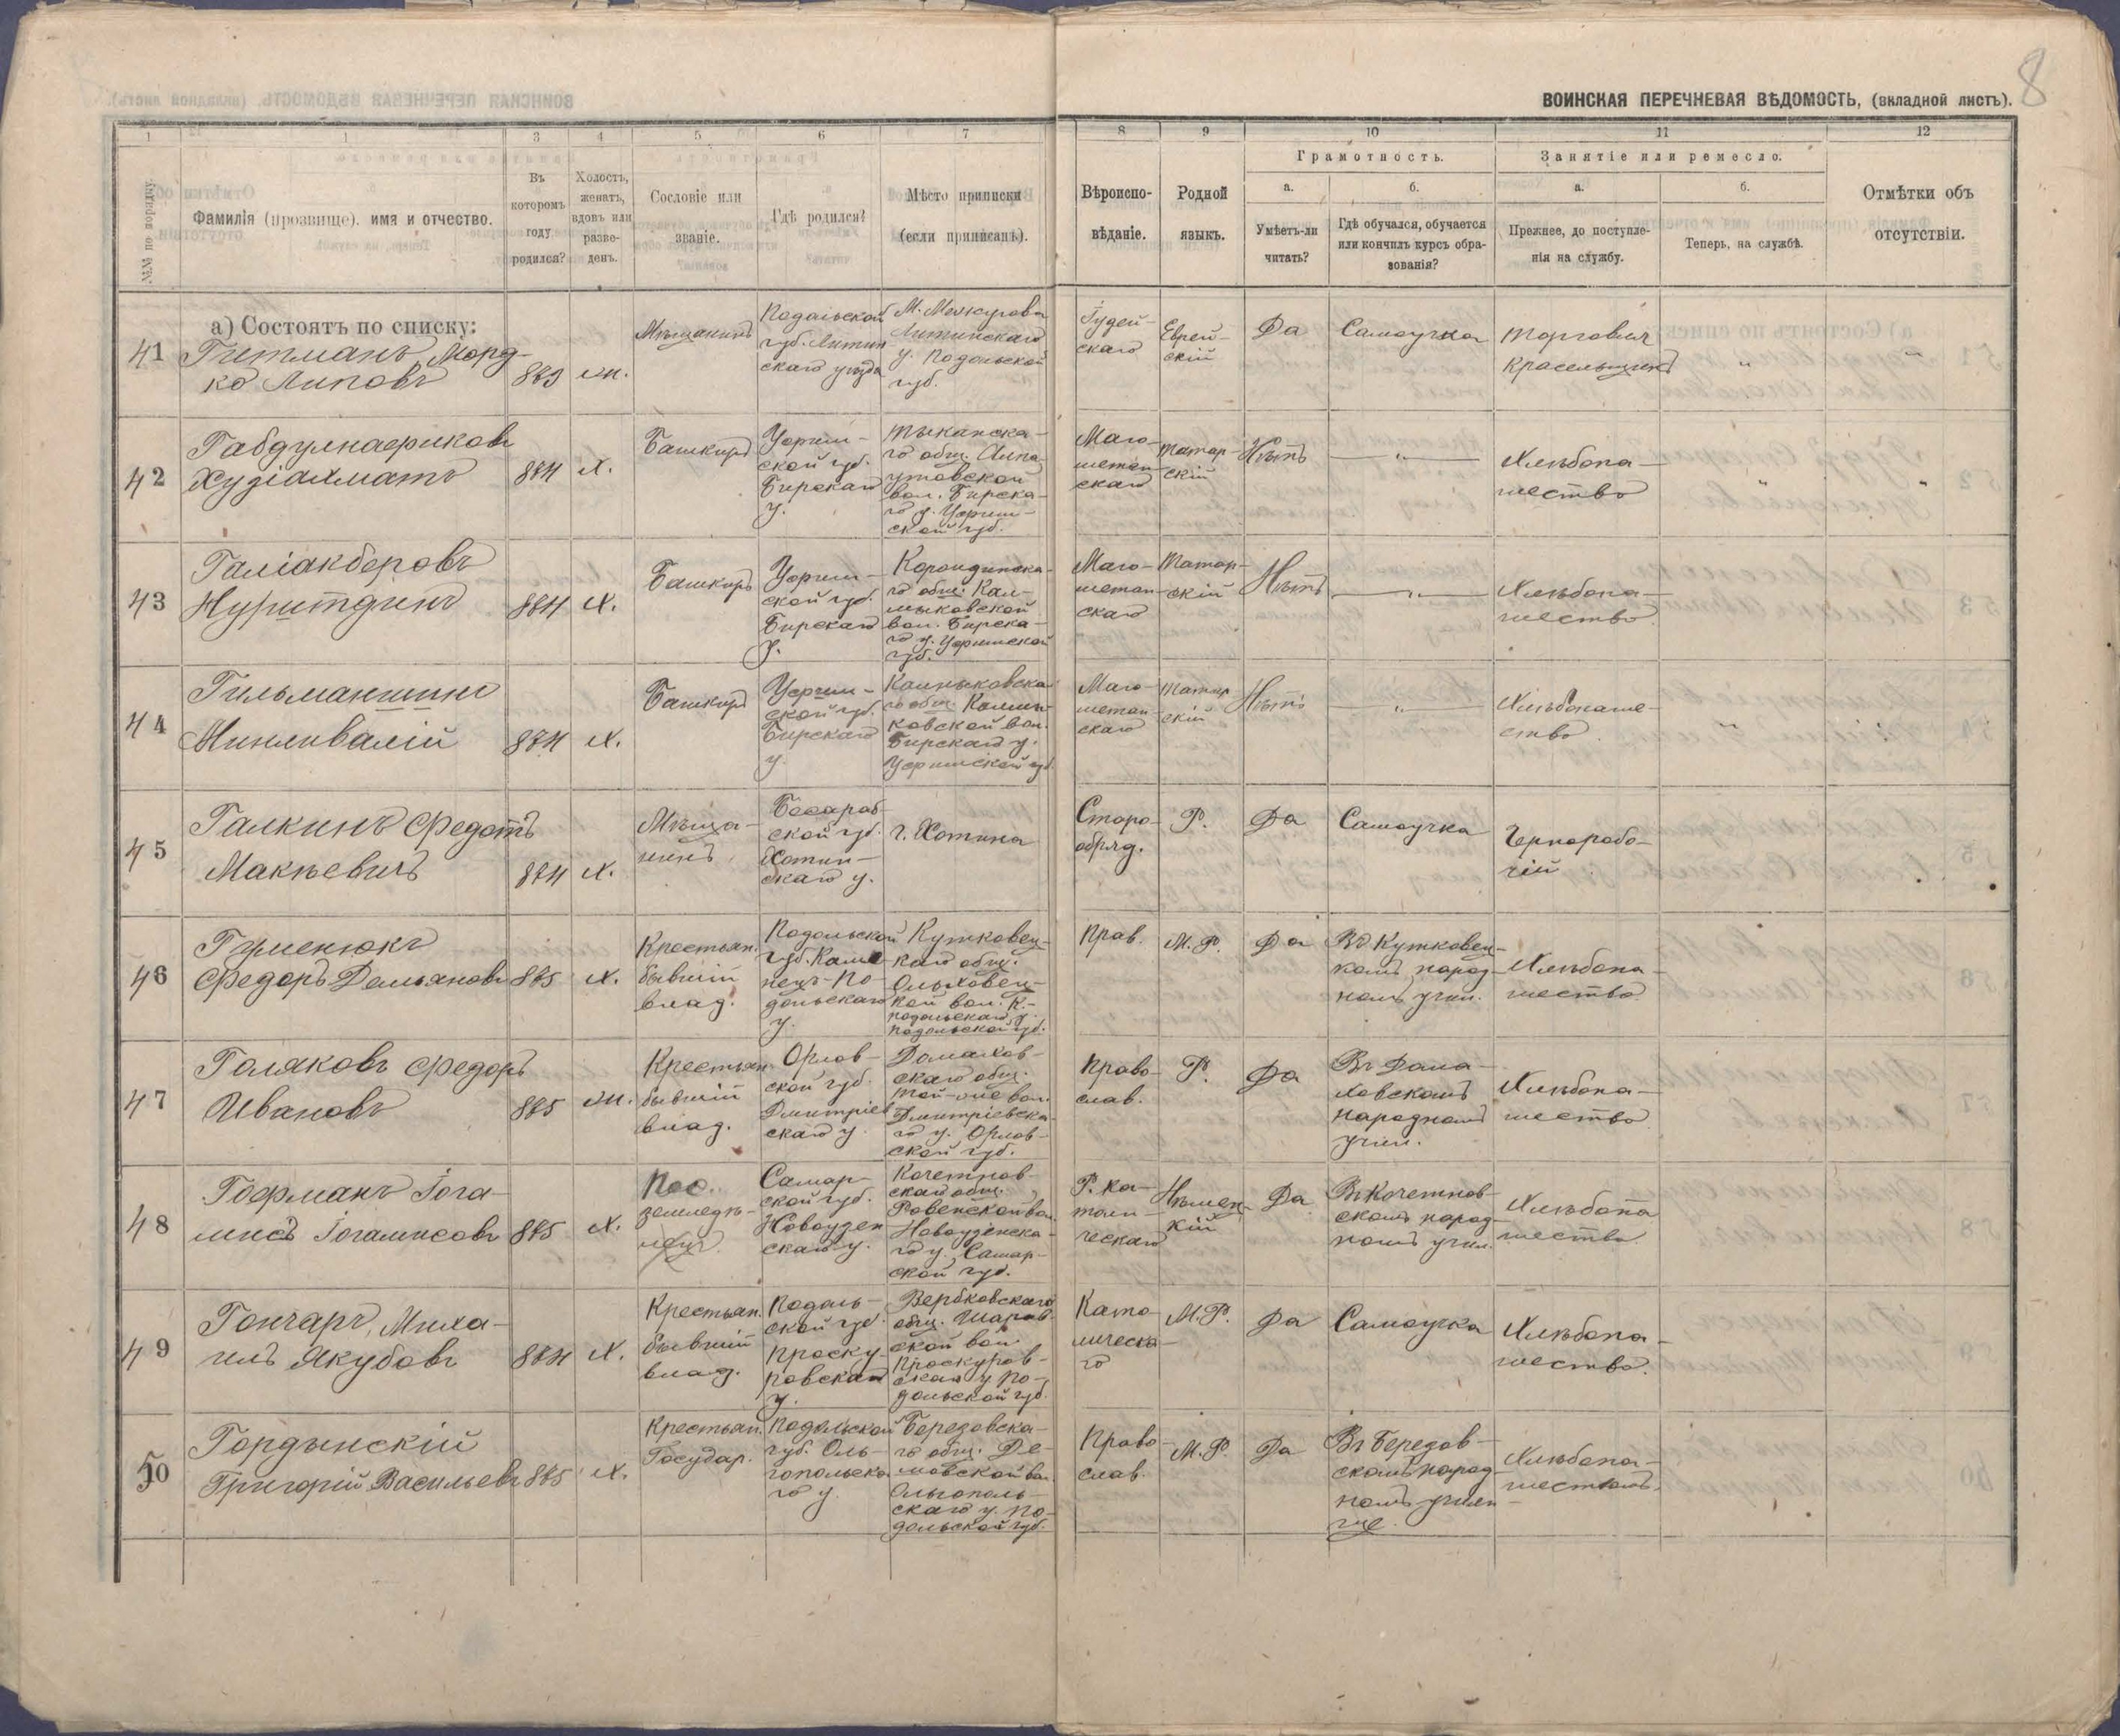 8
ВОИНСКАЯ ПЕРЕЧНЕВАЯ ВѢДОМОСТЬ, (вкладной листъ).
1 1 3 4 5 6 7 8 9 10 11 12
№№ по порядку.
Фамилія (прозвище), имя и отчество.
Въ
которомъ
году
родился?
Холостъ,
женатъ,
вдовъ или
разве-
денъ.
Сословіе или
званіе.
Гдѣ родился?
Мѣсто приписки
(если приписанъ).
Вѣроиспо-
вѣданіе.
Родной
языкъ.
Грамотность.
а.
Умѣетъ-ли
читать?
б.
Гдѣ обучался, обучается
или кончилъ курсъ обра-
зованія?
Занятіе или ремесло.
а.
Прежнее, до поступле-
нія на службу.
б.
Теперь, на службѣ.
Отмѣтки объ
отсутствіи.
а) Состоятъ по списку:
41
Гитманъ, Морд-
ко Липовъ
883
ж.
Мѣщанинъ
Подольской
губ. Литин
скаго уѣзда
М. Межирова
Литинскаго
у. Подольской
губ.
Іудей-
скаго
Еврей-
скій
Да
Самоучка
Торговля
Красельщикъ
"
"
42
Худіахматъ
884
х.
Башкиръ
Уфим-
ской губ.
Бирскаго
у.
го общ.
вол. Бирска-
го у. Уфим-
ской губ.
Маго-
метан-
скаго
Татар-
скій
Нѣтъ
— " —
Хлѣбопа-
шество
"
"
43
Галіакберовъ
Нуритдинъ
884
х.
Башкиръ
Уфим-
ской губ.
Бирскаго
у.
го общ. Кал-
мыковской
вол. Бирска-
го у. Уфимской
губ.
Маго-
метан-
скаго
Татар-
скій
Нѣтъ
— " —
Хлѣбопа-
шество
44
Гильманшинъ
Минливалій
884
х.
Башкиръ
Уфим-
ской губ.
Бирскаго
у.
го общ.
ковской вол.
Бирскаго у.
Уфимской губ.
Маго-
метан-
скаго
Татар
скій
Нѣтъ
— " —
Хлѣбопаше-
ство
"
45
Галкинъ Федотъ
Макѣевичъ
884
х.
Мѣща-
нинъ
Бесараб-
ской губ.
Хотин-
скаго у.
г. Хотина
Старо-
обряд.
Р.
Да
Самоучка
Чернорабо-
чій
46
Гуменюкъ
Федоръ Демьяновъ
885
х.
Крестьян.
бывшій
влад.
Подольской
губ. Каме
нецъ-По-
дольскаго
у.
Кутковец-
каго общ.
Ольховец-
кой вол. К.-
подольскаго у.
Подольской губ.
Прав.
М. Р.
Да
Въ Кутковец-
комъ народ-
номъ учил.
Хлѣбопа-
шество
47
Голяковъ Федоръ
Ивановъ
885
ж.
Крестьян.
бывшій
влад.
Орлов-
ской губ.
Дмитріев
скаго у.
Домахов-
скаго общ.
той-же вол.
Дмитріевска-
го у. Орлов-
ской губ.
Право-
слав.
Р.
Да
Въ Дома-
ховскомъ
народномъ
учил.
Хлѣбопа-
шество
48
Гофманъ Іога-
нисъ Іоганисовъ
885
х.
Пос.
земледѣ-
лецъ
Самар-
ской губ.
Новоузен
скаго у.
Кочетнов-
скаго общ.
Ровенской вол.
Новоузенска-
го у. Самар-
ской губ.
Р. ка-
толи-
ческаго
Нѣмец-
кій
Да
Въ Кочетнов-
скомъ народ-
номъ учил.
Хлѣбопа
шество
49
Гончаръ, Миха-
илъ Якубовъ
884
х.
Крестьян.
бывшій
влад.
Подоль-
ской губ.
Проску-
ровскаго
у.
Вербковскаго
общ. Шаров-
ской вол.
Проскуров-
скаго у. По-
дольской губ.
Като-
лическа-
го
М. Р.
Да
Самоучка
Хлѣбопа-
шество.
50
Гордынскій
Григорій Васильевъ
885
х.
Крестьян.
Государ.
Подольской
губ. Оль-
гопольска-
го у.
Березовска-
го общ.
вол.
Ольгополь-
скаго у. По-
дольской губ.
Право-
слав.
М. Р.
Да
Въ Березов-
скомъ народ-
номъ учили-
ще.
Хлѣбопа-